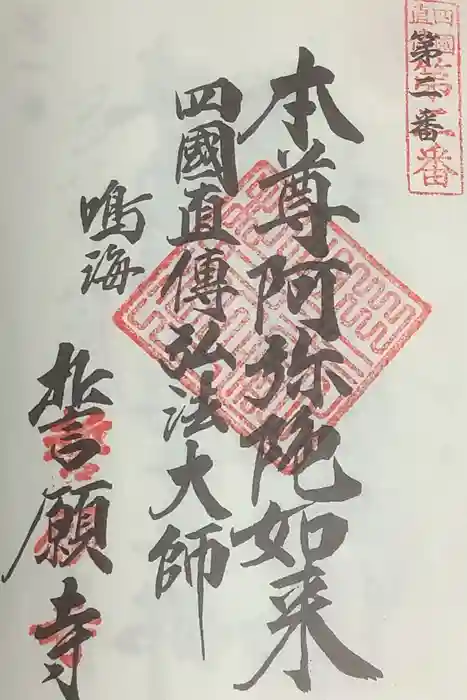 四國
直傳
第二番
第二番
本尊阿弥陀如来
四國直傳弘法大師
鳴海
誓願寺